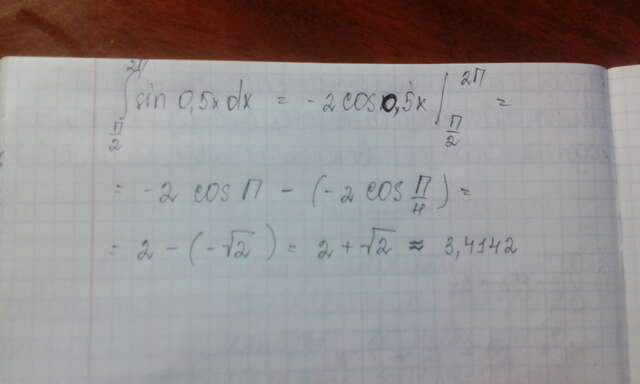 ∫_{π/2}^{2π} sin 0,5x dx = -2 cos 0,5x |_{π/2}^{2π} =
= -2 cos π - (-2 cos π/4) =
= 2 - (-√2) = 2 + √2 ≈ 3,4142